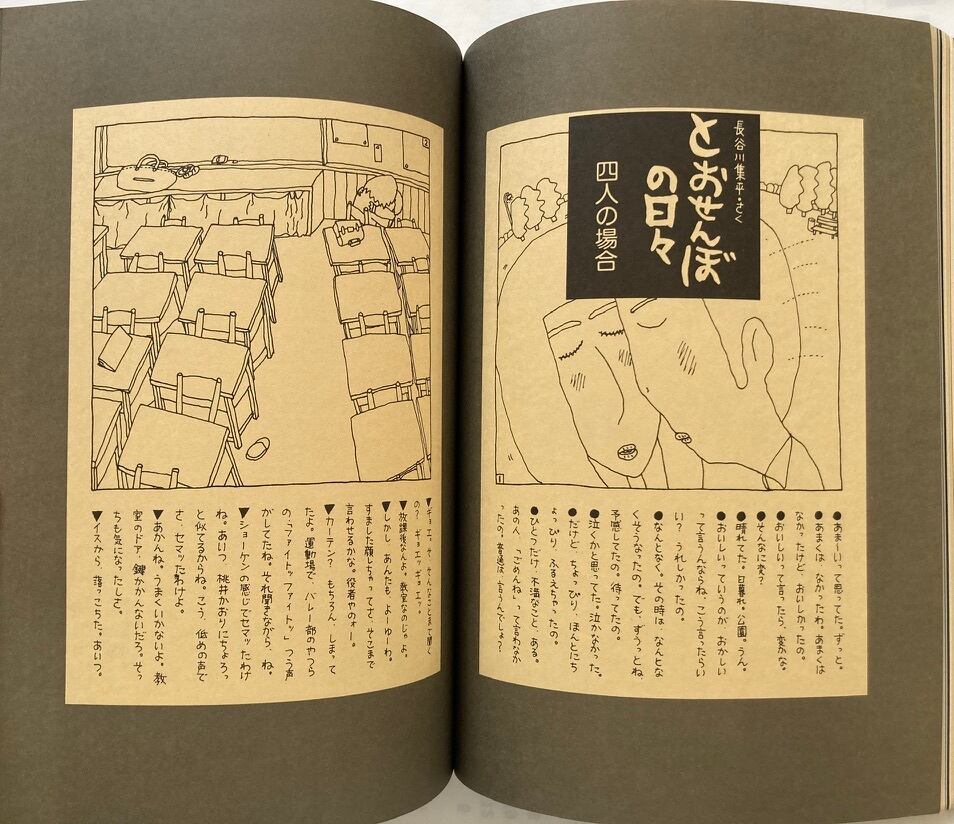 長谷川集平・さく
とおせんぼ
の日々
四人の場合
●あま〜いって思ってた。ずっと。
●あまくは なかったわ。あまくは
なかったけど、おいしかったの。
●おいしいって言ったら、変かな。
●そんなに変?
●晴れてた。日暮れ。公園。うん。
●おいしいっていうのが おかしい
って言うんならね、こう言ったらい
い? うれしかったの。
●なんとなく。その時は なんとな
くそうなったの。でも、ずうっとね、
予感してたの。待ってたの。
●泣くかと思ってた。泣かなかった。
●だけど、ちょっぴり、ほんとにち
ょっぴり、ふるえちゃったの。
●ひとつだけ、不満なこと、ある。
あの人、「ごめんね」って言わなか
ったの。普通は、言うんでしょ?
1
2
の? ギョエッギョエッ。
▼放課後なんよ。教室なのじゃ よ。
▼しかし、あんたも よーゆーわ。
すました顔しちゃってさ、そこまで
言わせるかな。役者やのォー。
▼カーテン? もちろん、しまって
たよ。運動場で、バレー部のやつら
の、「ファイトッファイトッ」つう声
がしてたね。それ聞きながら、ね。
▼ショーケンの感じでセマッたわけ
ね。あいつ 桃井かおりにちょろっ
と似てるからね。こう、低めの声で
さ、セマッたわけよ。
▼あかんね。うまくいかないよ。教
室のドア。鍵かかんないだろ。そっ
ちも気になったしさ。
▼イスから、落っこちた。あいつ。